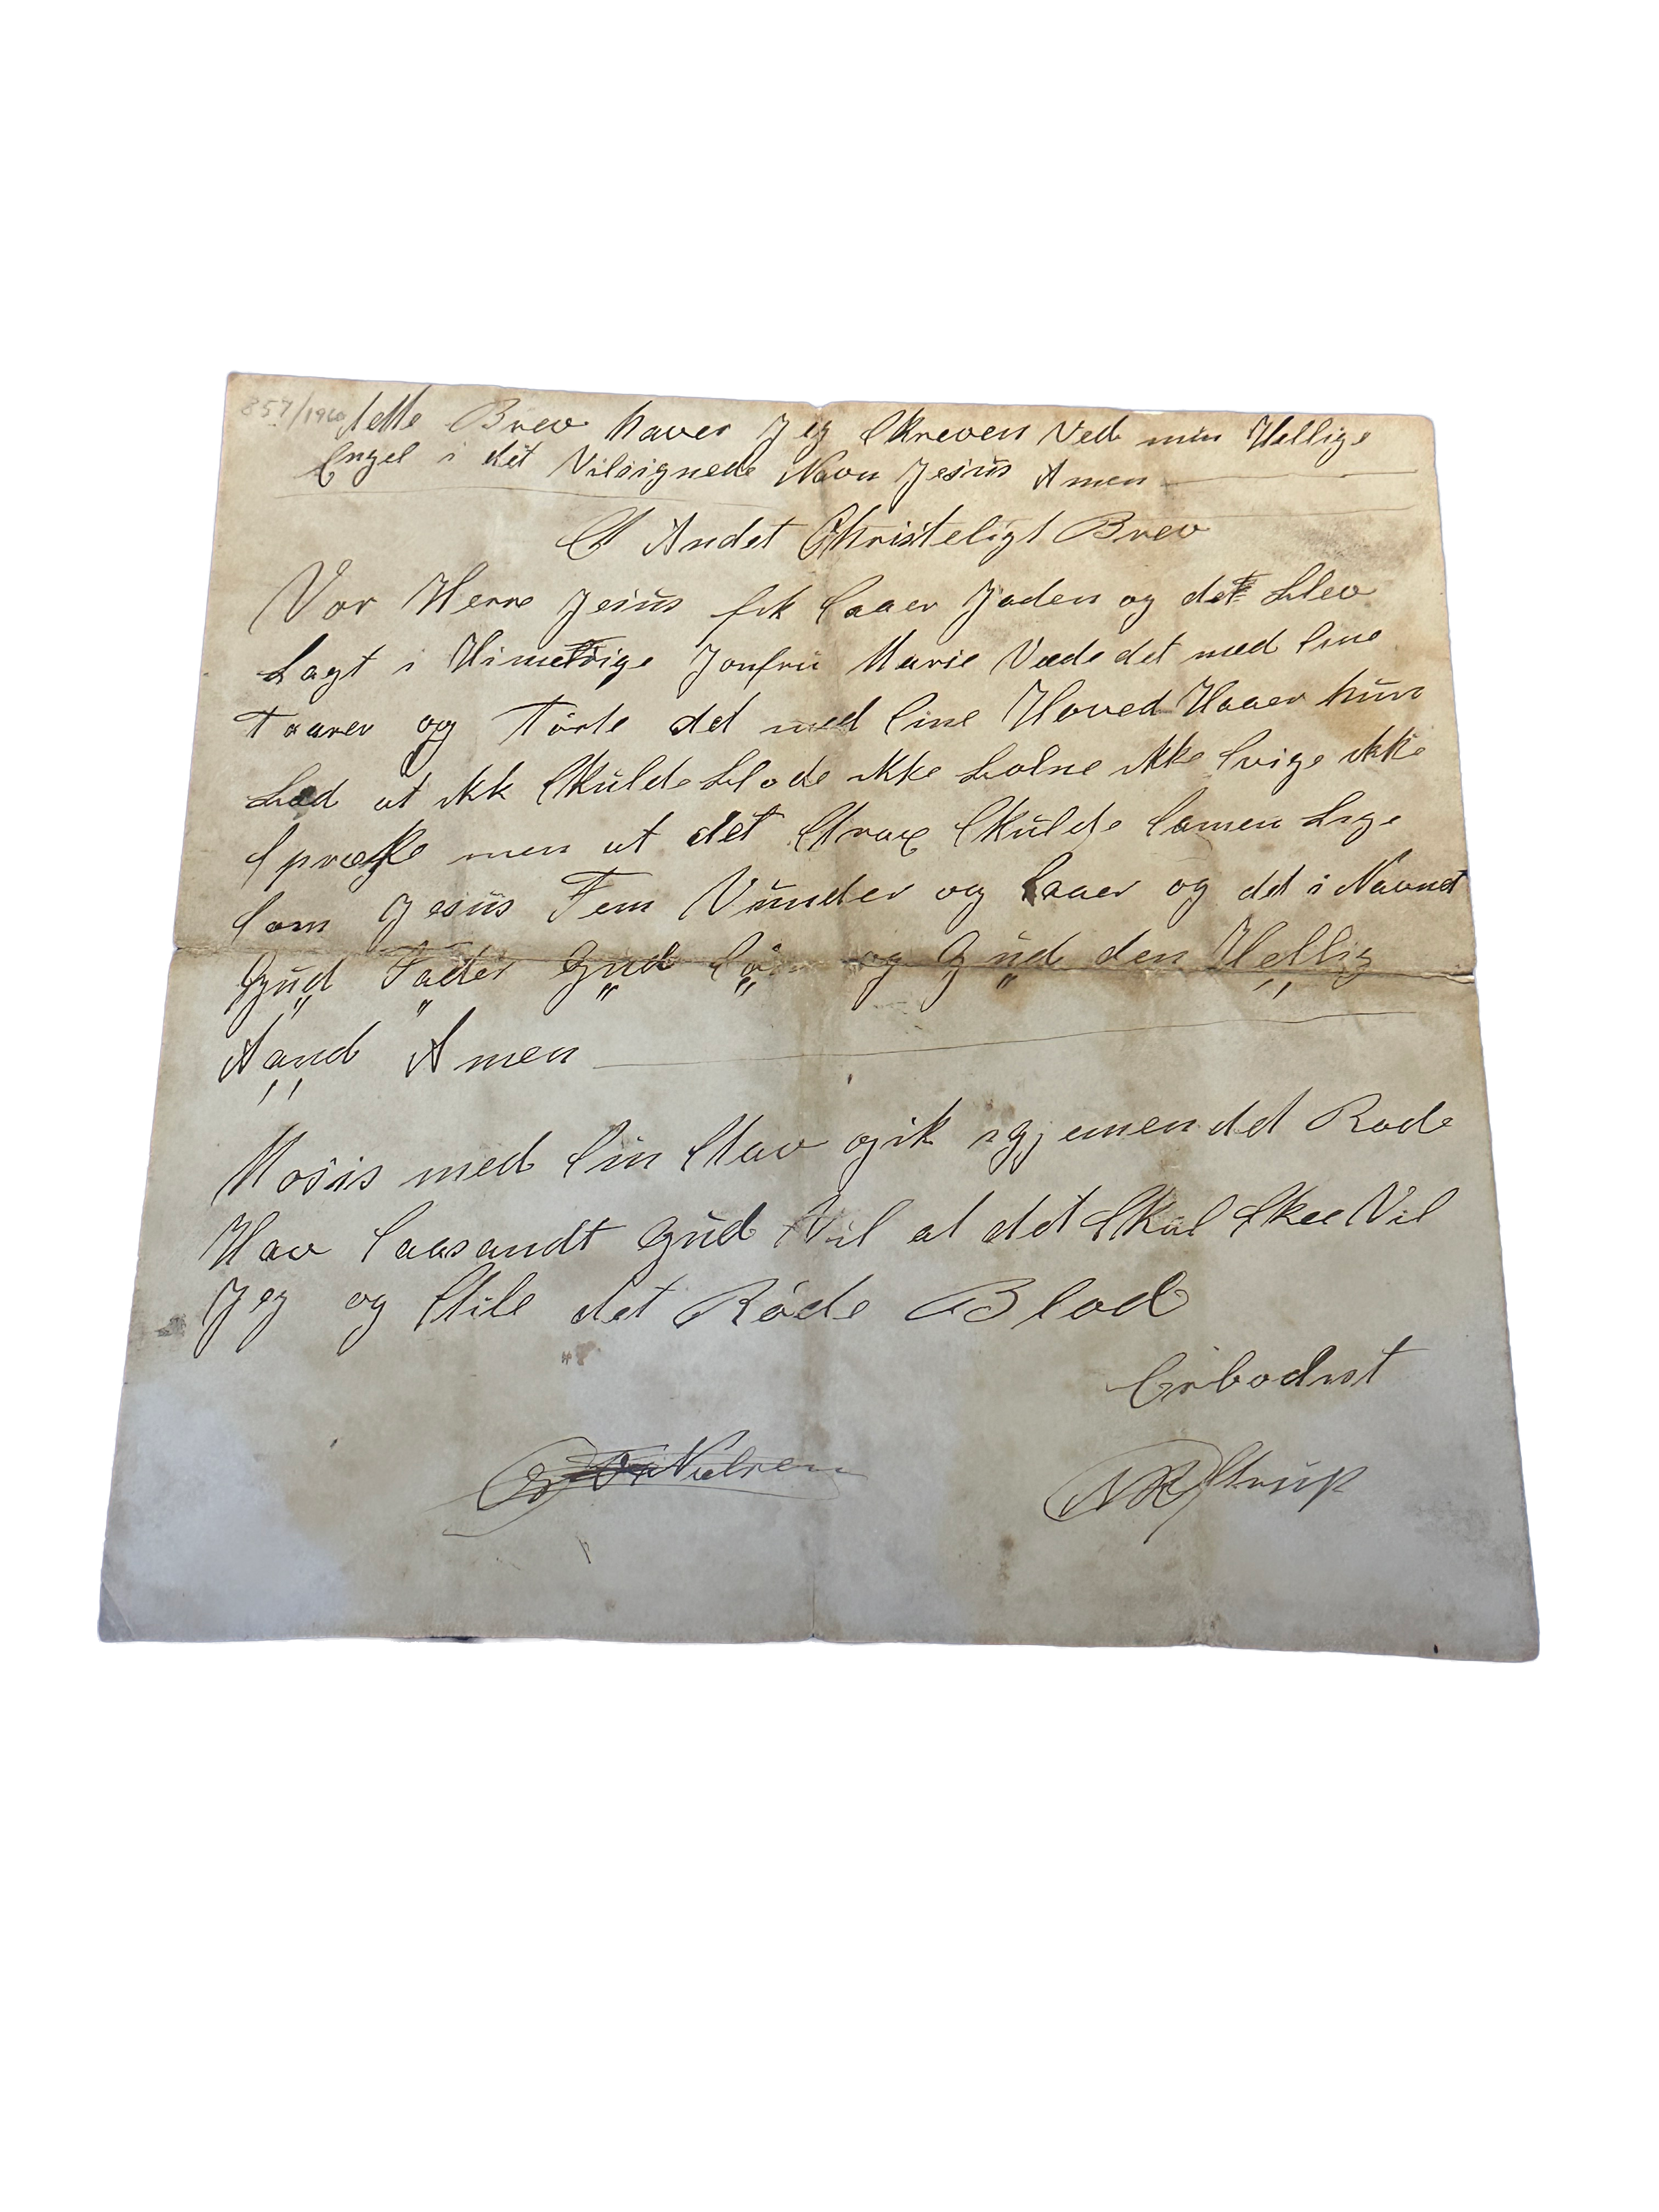 857/1960 dette Brev haver Jeg Skreven Ved min Hellige
Engel i det Vilsignede Navn Jesus Amen
Et Andet Christeligt Brev
Vor Herre Jesus fik Saaer Jaden og det blev
Lagt i Jonfru Marie Væde det med Sine
Taarer og Törte det med Sine Hoved Haaer hun
bad at ikk Skulde blode ikke bolne ikke Svige ikke
Spræke men at det Strax Skulde Samen Lige
Som Jesus Fem Vunder og Saaer og det i Navnet
Gud Fader Gud Sön og Gud den Hellig
Aand Amen
Mosis med Sin Stav gik igjemen det Rode
Hav Saasandt Gud Vil at det Skal Skee Vil
Jeg og Stile det Röde Blod
Erbodnst
Nielsen
Strup